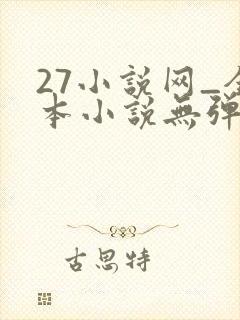 27小説网_全
本小説無弹
古思特